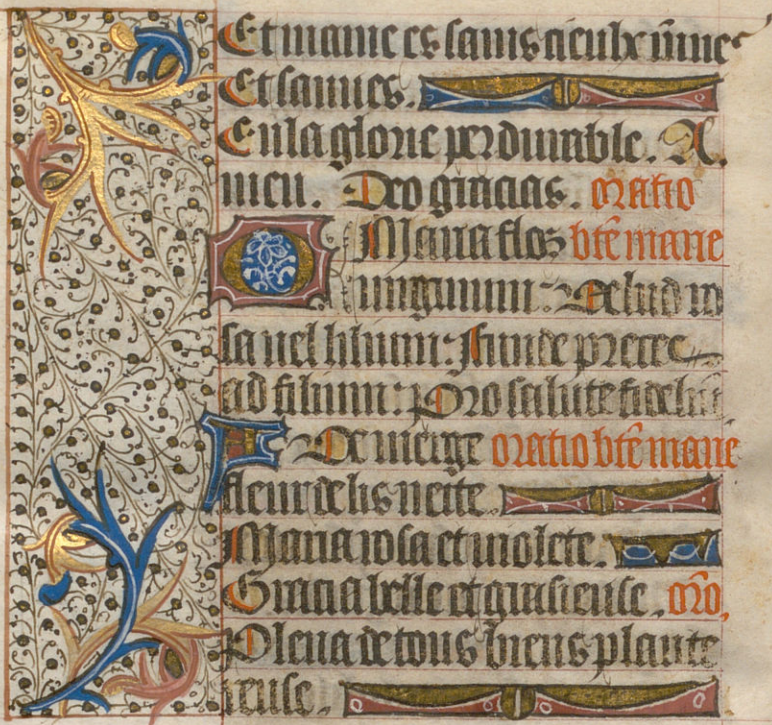 Et maine es sains cieulx
Et sannes.
En la glorie perdurable. A
men. Deo gracias. oratio
O Maria flos bte marie
uirginum: velud ro
sa uel lilium: Funde preces
ad filium: Pro salute fideliu
A Ve uierge oratio bte marie
fleur de lis neite.
Maria rosa et uiolete.
Gracia belle et grasieuse. oro,
Plena de tous biens plante
reuse.